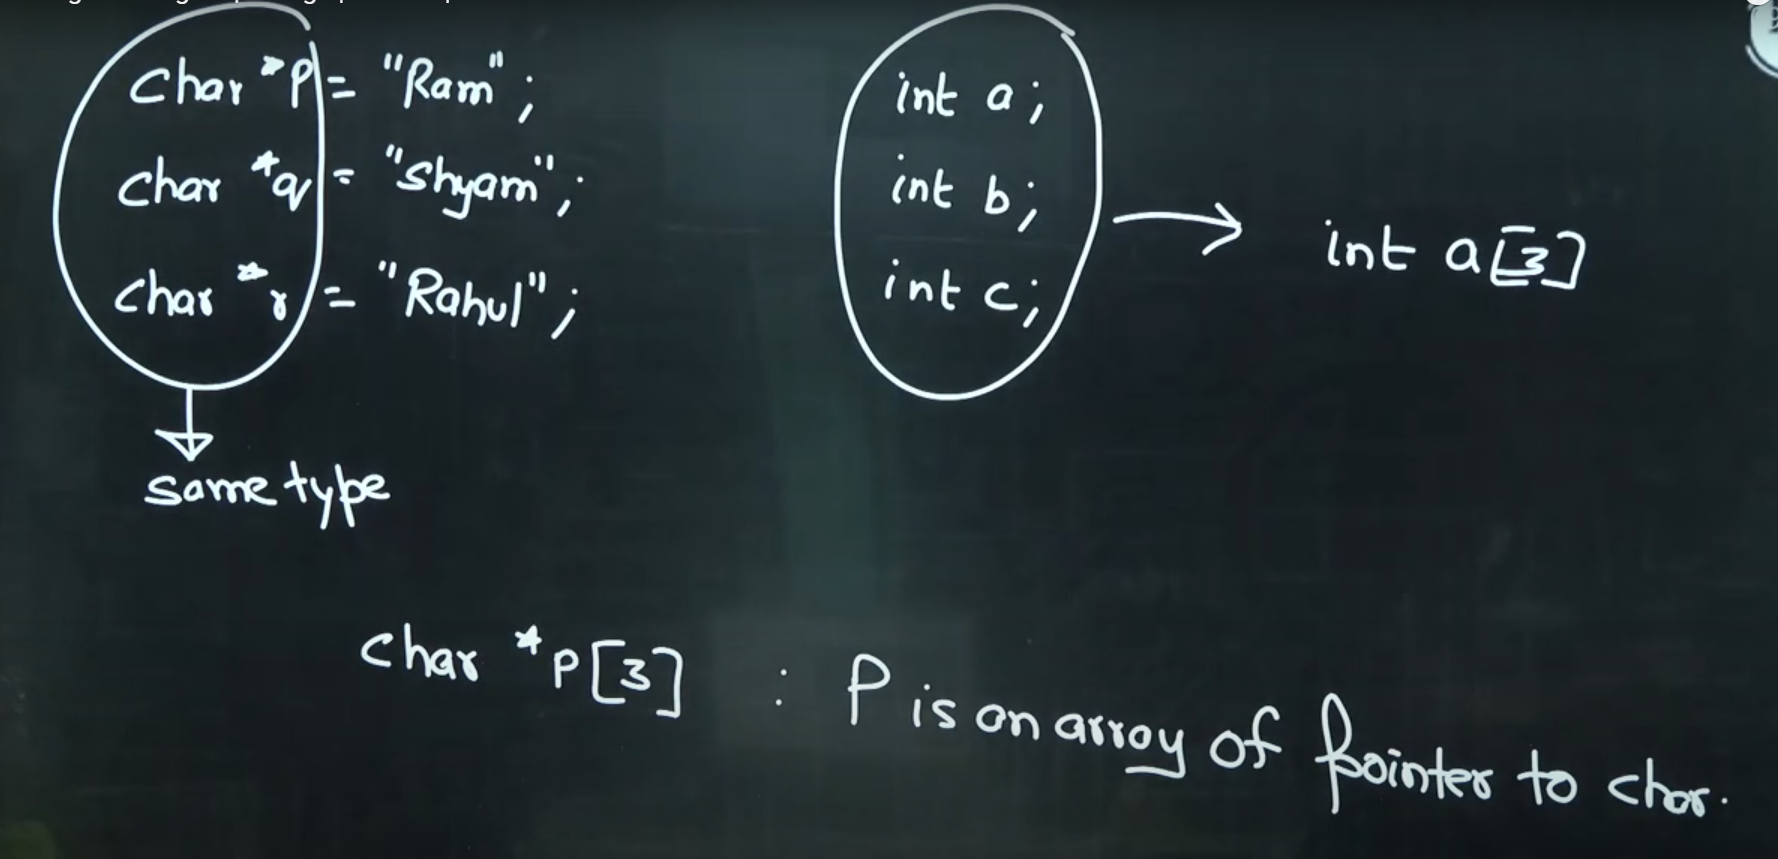 char *p = "Ram";
char *q = "Shyam";
char *r = "Rahul";
same type
int a;
int b;
int c;
int a[3]
char *p[3] : P is an array of pointer to char.